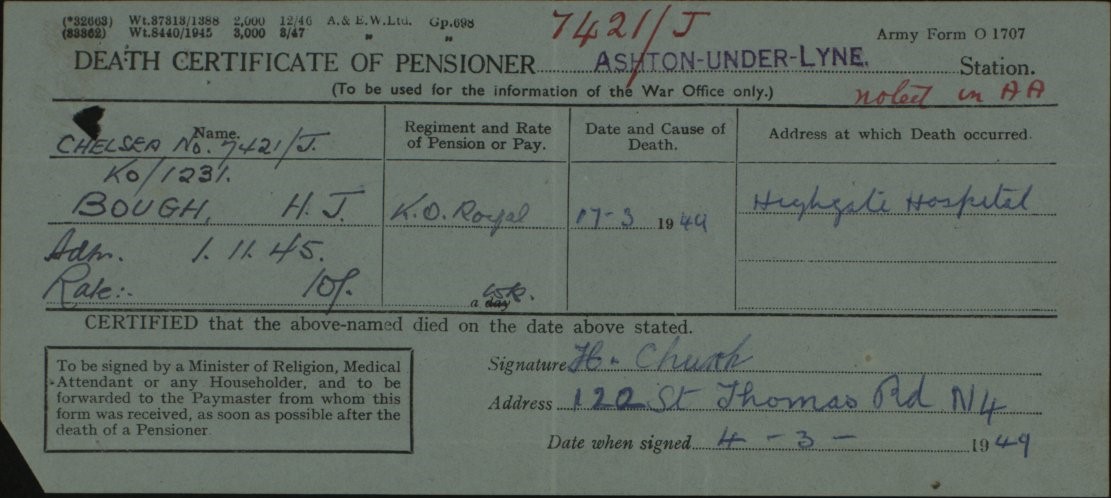 (*32663) Wt.37813/1388 2,000 12/46 A. & E.W.Ltd. Gp.698
(33862) Wt.8440/1945 3,000 3/47 " "
7421/J
Army Form O 1707
DEATH CERTIFICATE OF PENSIONER ASHTON-UNDER-LYNE. Station.
(To be used for the information of the War Office only.)
noted in AA
Name.
CHELSEA No. 7421/J.
KO/1231.
BOUGH, H. J.
Adm. 1. 11. 45.
Rate:- 10/.
Regiment and Rate
of Pension or Pay.
K.O. Royal
a day wk.
Date and Cause of
Death.
17-3 1949
Address at which Death occurred.
Highgate Hospital
CERTIFIED that the above-named died on the date above stated.
To be signed by a Minister of Religion, Medical
Attendant or any Householder, and to be
forwarded to the Paymaster from whom this
form was received, as soon as possible after the
death of a Pensioner
Signature H.
Address 122 St Thomas Rd N4
Date when signed 4 - 3 - 1949